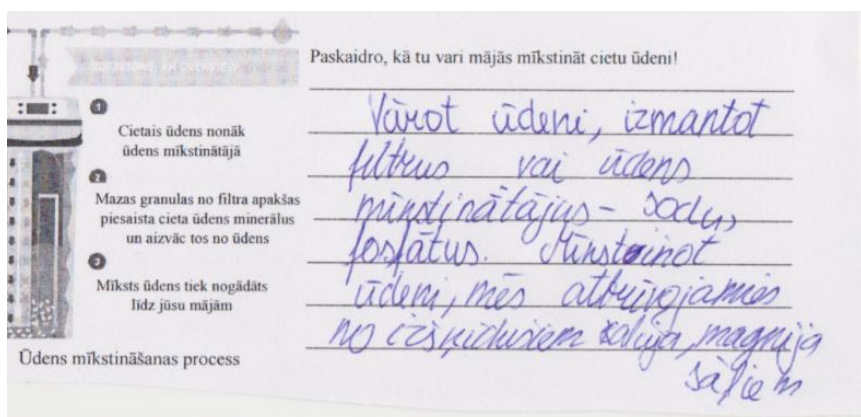 SOFTENING: AN OVERVIEW
1
Cietais ūdens nonāk
ūdens mīkstinātājā
2
Mazas granulas no filtra apakšas
piesaista cieta ūdens minerālus
un aizvāc tos no ūdens
3
Mīksts ūdens tiek nogādāts
līdz jūsu mājām
Ūdens mīkstināšanas process
Paskaidro, kā tu vari mājās mīkstināt cietu ūdeni!
Vārot ūdeni, izmantot
filtrus vai ūdens
mīnstinātājus - sodu,
fosfātus. Mīnstinot
ūdeni, mēs atbrīvojamies
no izšķidušiem kalcija, magnija
sāļiem